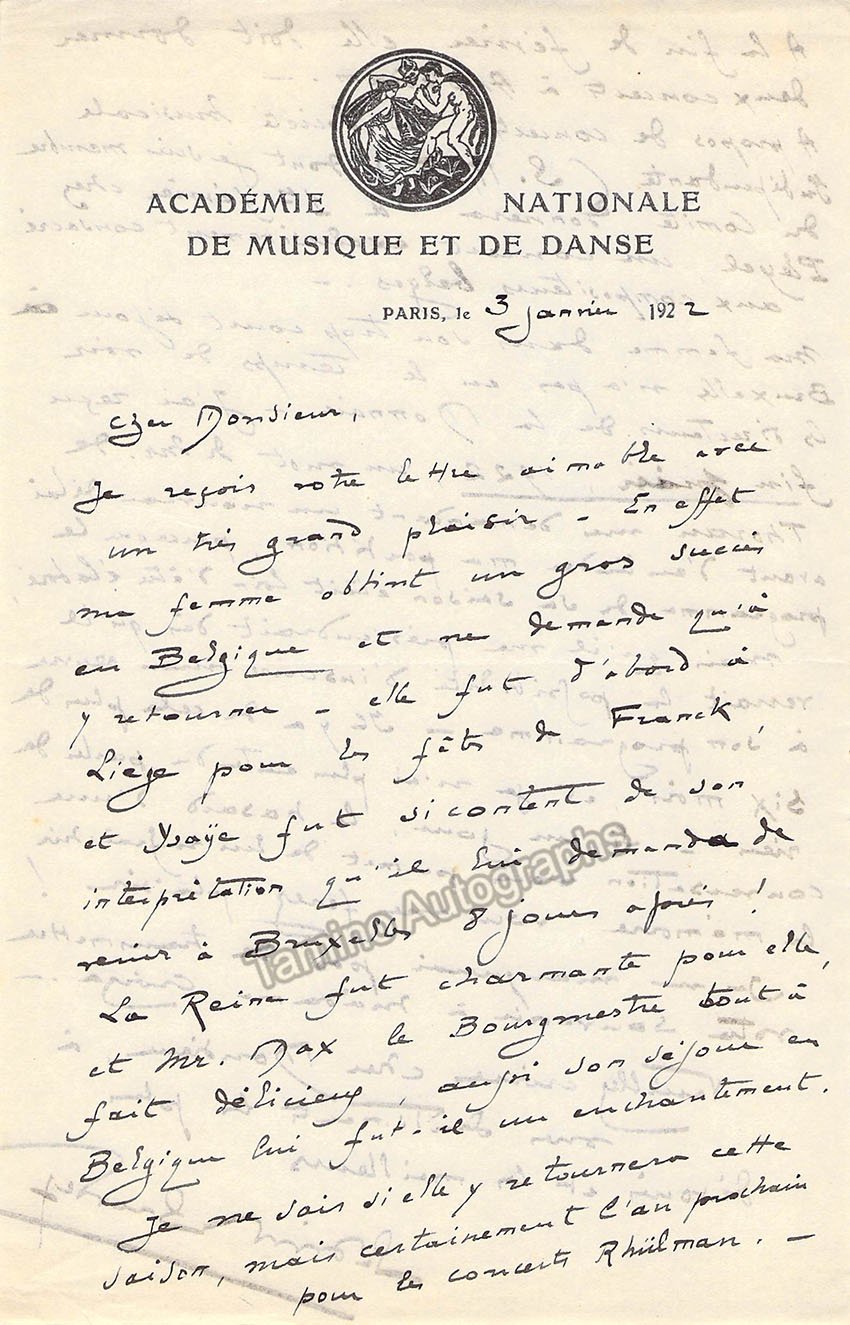 ACADÉMIE NATIONALE
DE MUSIQUE ET DE DANSE
PARIS, le 3 janvier 1922
Cher Monsieur,
Je reçois votre lettre aimable avec
un très grand plaisir – En effet
ma femme obtint un gros succès
en Belgique et ne demande qu'à
y retourner – elle fut d'abord à
Liège pour les fêtes de Franck
et Ysaÿe fut si content de son
interprétation qu'il lui demanda de
venir à Bruxelles 8 jours après !
La Reine fut charmante pour elle,
et Mr. Max le Bourgmestre tout à
fait délicieux, aussi son séjour en
Belgique lui fut-il un enchantement.
Je ne sais si elle y retournera cette
saison, mais certainement l'an prochain
pour les concerts Rhülman. –
Tamino Autographs